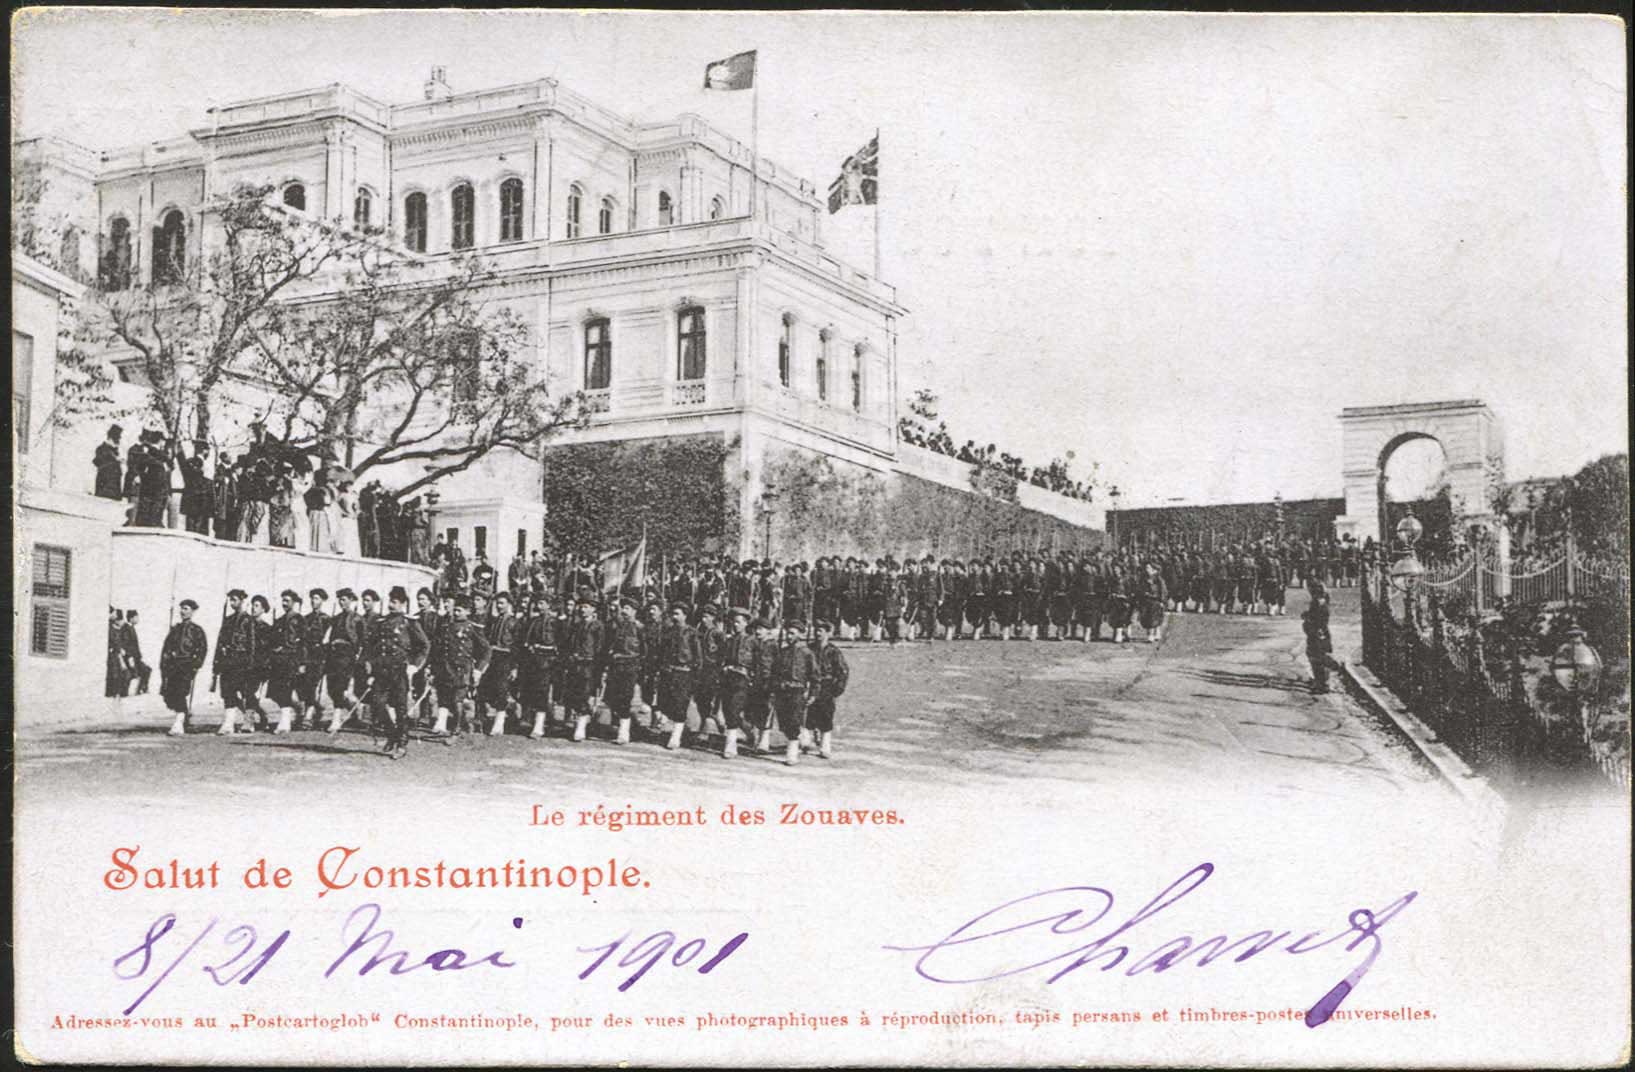 Le régiment des Zouaves.
Salut de Constantinople.
8/21 Mai 1901
Adressez-vous au „Postcartoglob“ Constantinople, pour des vues photographiques à réproduction, tapis persans et timbres-postes universelles.